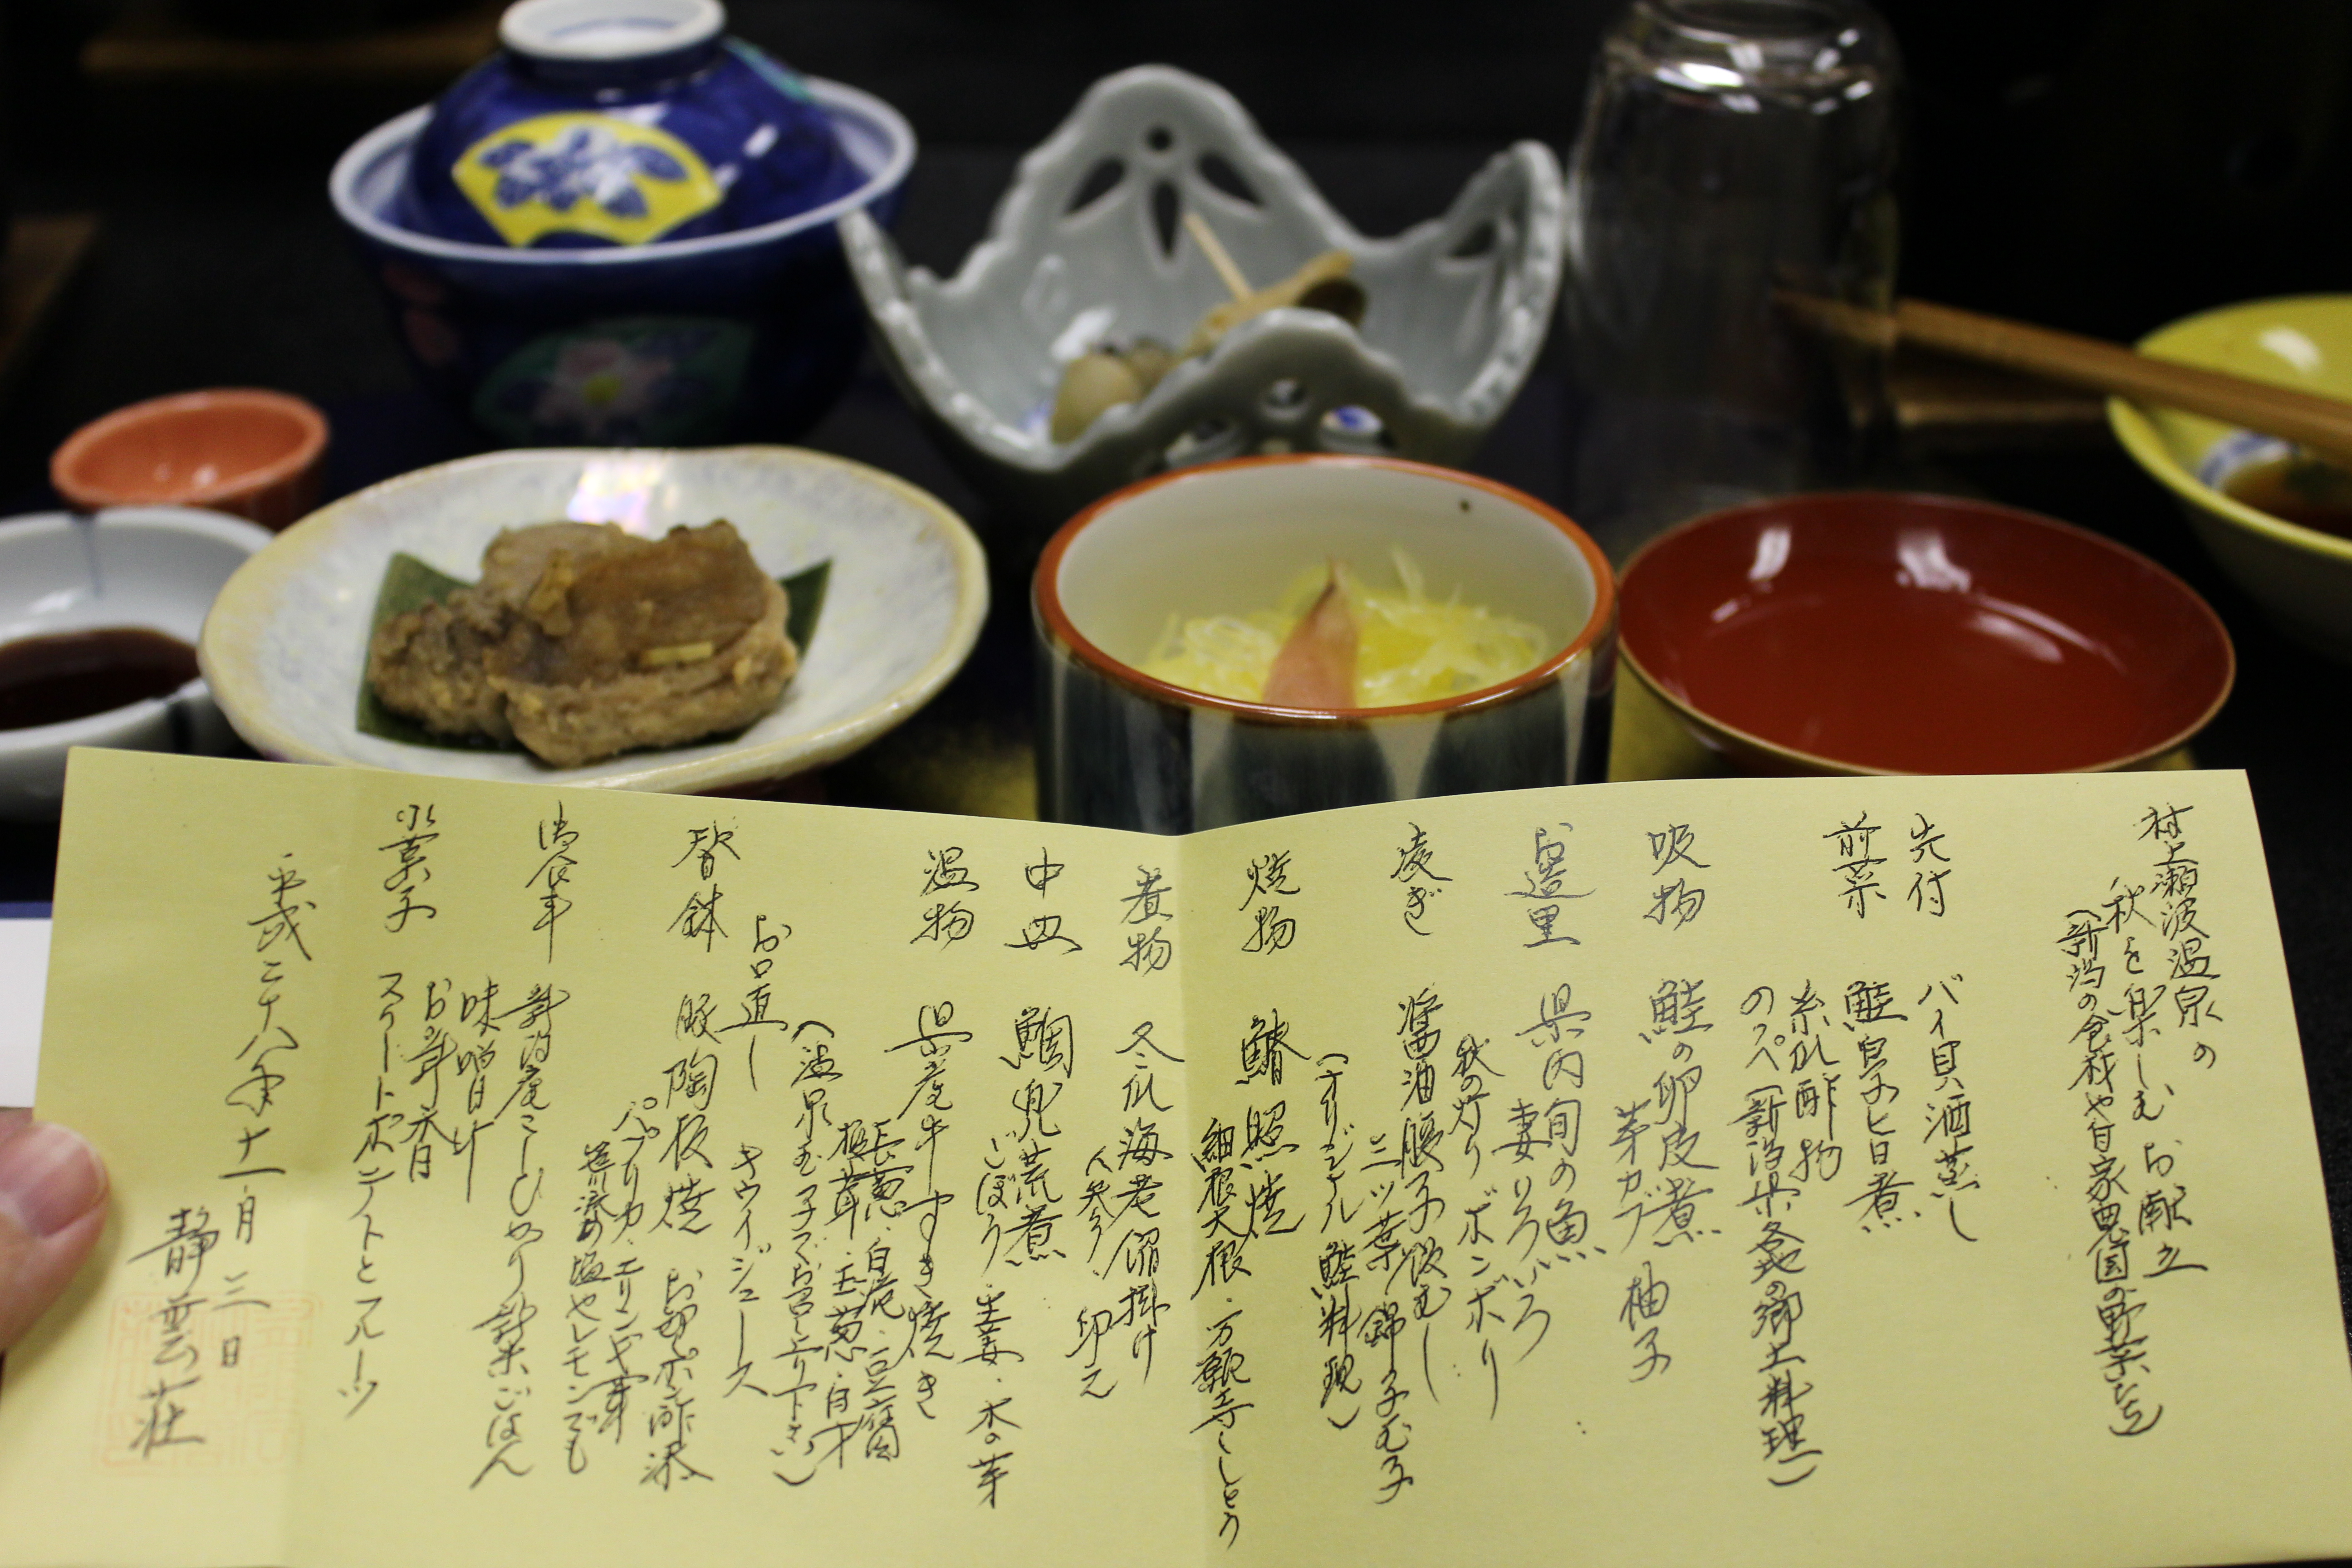 村上瀬波温泉の
秋を楽しむお献立
(新潟の食材や自家農園の野菜など)
先付 バイ貝酒蒸し
前菜 鮭白子とロ煮
糸瓜酢物
のっぺ(新潟県各地の郷土料理)
吸物 鮭の卵皮煮
芽カブ 柚子
お造里 県内旬の魚
妻いろいろ
秋の灯りボンボリ
凌ぎ 醤油腹子飯むし
三ツ葉 錦子
(オリジナル鮭料理)
焼物 鰆照焼
細根大根・万願寺ししとう
煮物 冬瓜海老餡掛け
人参
中皿 鯛兜荒煮
ごぼう・生姜・木の芽
温物 県産牛すき焼き
長葱・白滝・豆腐
榎茸・玉葱
(温泉玉子でお召し上り下さい)
お口直し キウイジュース
替鉢 豚陶板焼 お部ポン酢添
パプリカ・エリンギ茸
笹川流れ塩やレモンでも
御食事 新潟産こしひかり新米ごはん
味噌汁
お新香
水菓子 スイートポテトとフルーツ
平成二十八年十一月三日
静雲荘